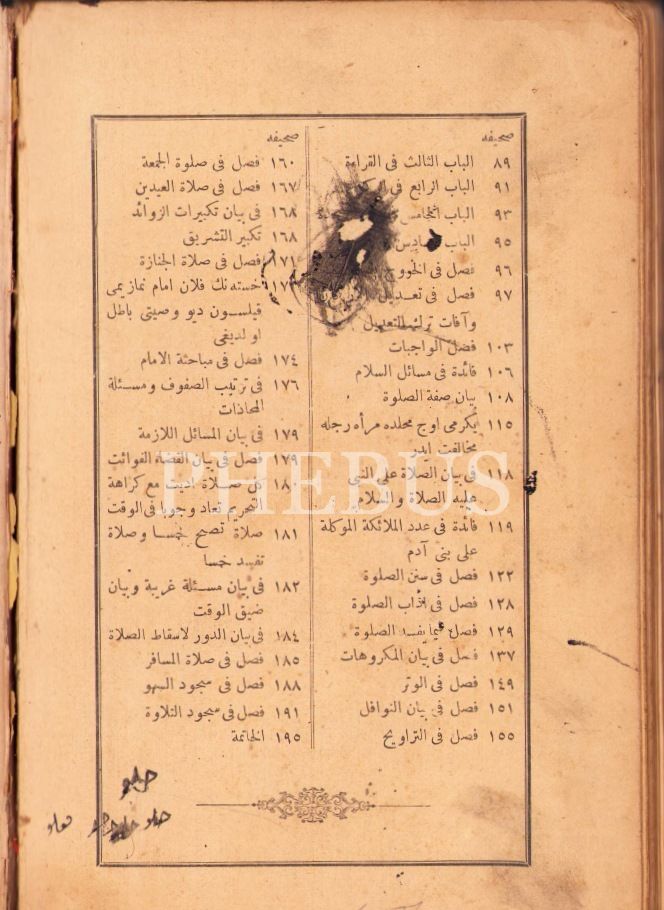 صحيفه
٨٩ الباب الثالث فى القراءة
٩١ الباب الرابع فى
٩٣ الباب الخامس
٩٥ الباب السادس
٩٦ فصل فى
٩٧ فصل فى تعديل
وآفات ترك التعديل
١٠٣ فصل الواجبات
١٠٦ فائدة فى مسائل السلام
١٠٨ بيان صفة الصلوة
١١٥ يكرمى اوچ محلده مرأه رجله
مخالفت ايدر
١١٨ فى بيان الصلاة على النبى
عليه الصلاة والسلام
١١٩ فائدة فى عدد الملائكة الموكلة
على بنى آدم
١٢٢ فصل فى سنن الصلوة
١٢٨ فصل فى آداب الصلوة
١٢٩ فصل فيما يفسد الصلوة
١٣٧ فصل فى بيان المكروهات
١٤٩ فصل فى الوتر
١٥١ فصل فى بيان النوافل
١٥٥ فصل فى التراويح
صحيفه
١٦٠ فصل فى صلوة الجمعة
١٦٧ فصل فى صلاة العيدين
١٦٨ فى بيان تكبيرات الزوائد
١٦٨ تكبير التشريق
١٧١ فصل فى صلاة الجنازة
خسته نك فلان امام نمازيمى
قيلسون ديو وصيتى باطل
اولديغى
١٧٤ فصل فى مباحثة الامام
١٧٦ فى ترتيب الصفوف ومسئلة
المحاذات
١٧٩ فى بيان المسائل اللازمة
١٧٩ فصل فى بيان القضاء الفوائت
١٨١ كل صلاة اديت مع كراهة
التحريم تعاد وجوبا فى الوقت
١٨١ صلاة تصحح خمسا وصلاة
تفسد خمسا
١٨٢ فى بيان مسئلة غريبة وبيان
ضيق الوقت
١٨٤ فى بيان الدور لاسقاط الصلاة
١٨٥ فصل فى صلاة المسافر
١٨٨ فصل فى سجود السهو
١٩١ فصل فى سجود التلاوة
١٩٥ الخاتمة
PHEBUS